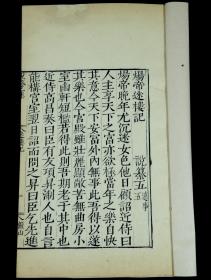 煬帝迷樓記 說纂五 逸事
煬帝晚年尤沉迷女色他日顧詔近侍曰
人主享天下之富亦欲極當年之樂自快
其意今天下安富外內無事此吾得以遂
其樂也今宮殿雖壯麗顯敞苦無曲房小
室幽軒短檻若得此則吾期老於其中也
近侍高昌奏曰臣有友項昇浙人也自言
能構宮室翌日詔而問之昇曰臣乞先進